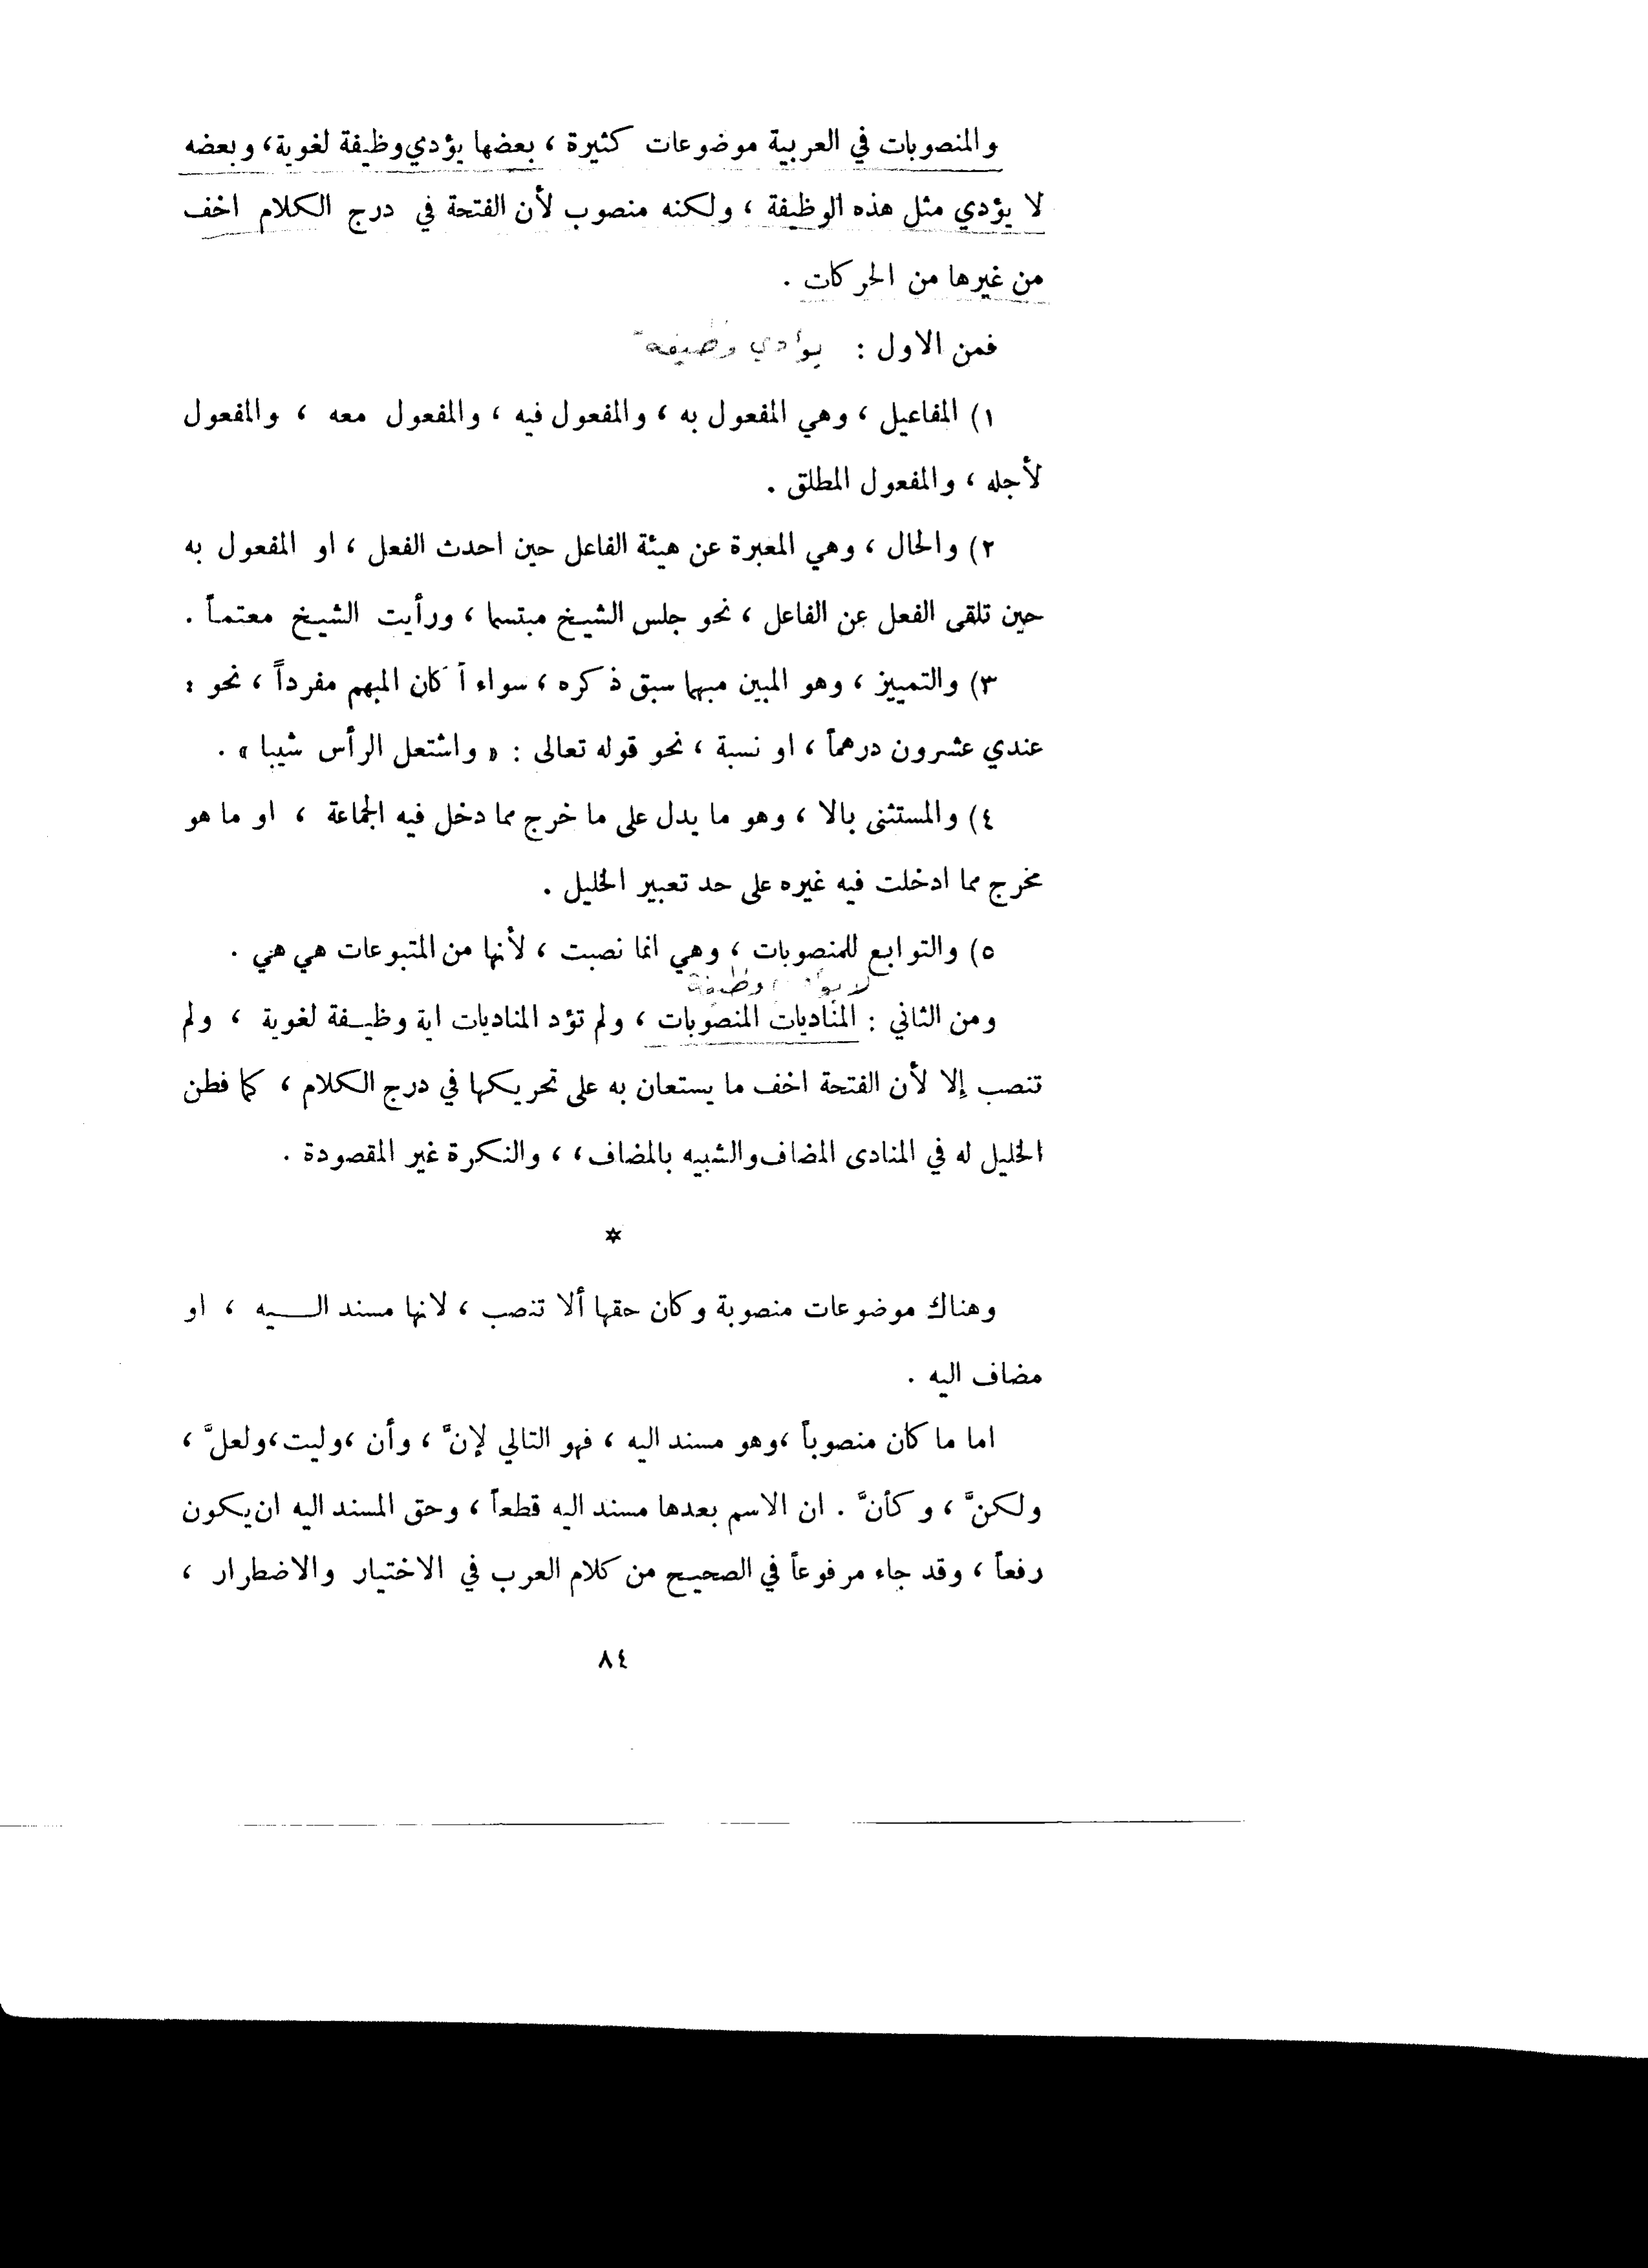 والمنصوبات في العربية موضوعات كثيرة ، بعضها يؤدي وظيفة لغوية، وبعضه
لا يؤدي مثل هذه الوظيفة ، ولكنه منصوب لأن الفتحة في درج الكلام اخف
من غيرها من الحركات .
فمن الاول : يوأدي وظيفة
١) المفاعيل ، وهي المفعول به ، والمفعول فيه ، والمفعول معه ، والمفعول
لأجله ، والمفعول المطلق .
٢) والحال ، وهي المعبرة عن هيئة الفاعل حين احدث الفعل ، او المفعول به
حين تلقى الفعل عن الفاعل ، نحو جلس الشيخ مبتسما ، ورأيت الشيخ معتمـاً .
٣) والتمييز ، وهو المبين مبهما سبق ذكره ، سواء أ كان المبهم مفرداً ، نحو :
عندي عشرون درهماً ، او نسبة ، نحو قوله تعالى : « واشتعل الرأس شيبا » .
٤) والمستثنى بالا ، وهو ما يدل على ما خرج مما دخل فيه الجماعة ، او ما هو
مخرج مما ادخلت فيه غيره على حد تعبير الخليل .
٥) والتوابع للمنصوبات ، وهي انما نصبت ، لأنها من المتبوعات هي هي .
لا وظيفة
ومن الثاني : المناديات المنصوبات ، ولم تؤد المناديات اية وظيـفة لغوية ، ولم
تنصب إلا لأن الفتحة اخف ما يستعان به على تحريكها في درج الكلام ، كما فطن
الخليل له في المنادى المضاف والشبيه بالمضاف، ، والنكرة غير المقصودة .
*
وهناك موضوعات منصوبة وكان حقها ألا تنصب ، لانها مسند الـــيه ، او
مضاف اليه .
اما ما كان منصوباً ،وهو مسند اليه ، فهو التالي لإنَّ ، وأن ،وليت،ولعلَّ ،
ولكنَّ ، وكأنَّ . ان الاسم بعدها مسند اليه قطعاً ، وحق المسند اليه ان يكون
رفعاً ، وقد جاء مرفوعاً في الصحيح من كلام العرب في الاختيار والاضطرار ،
٨٤